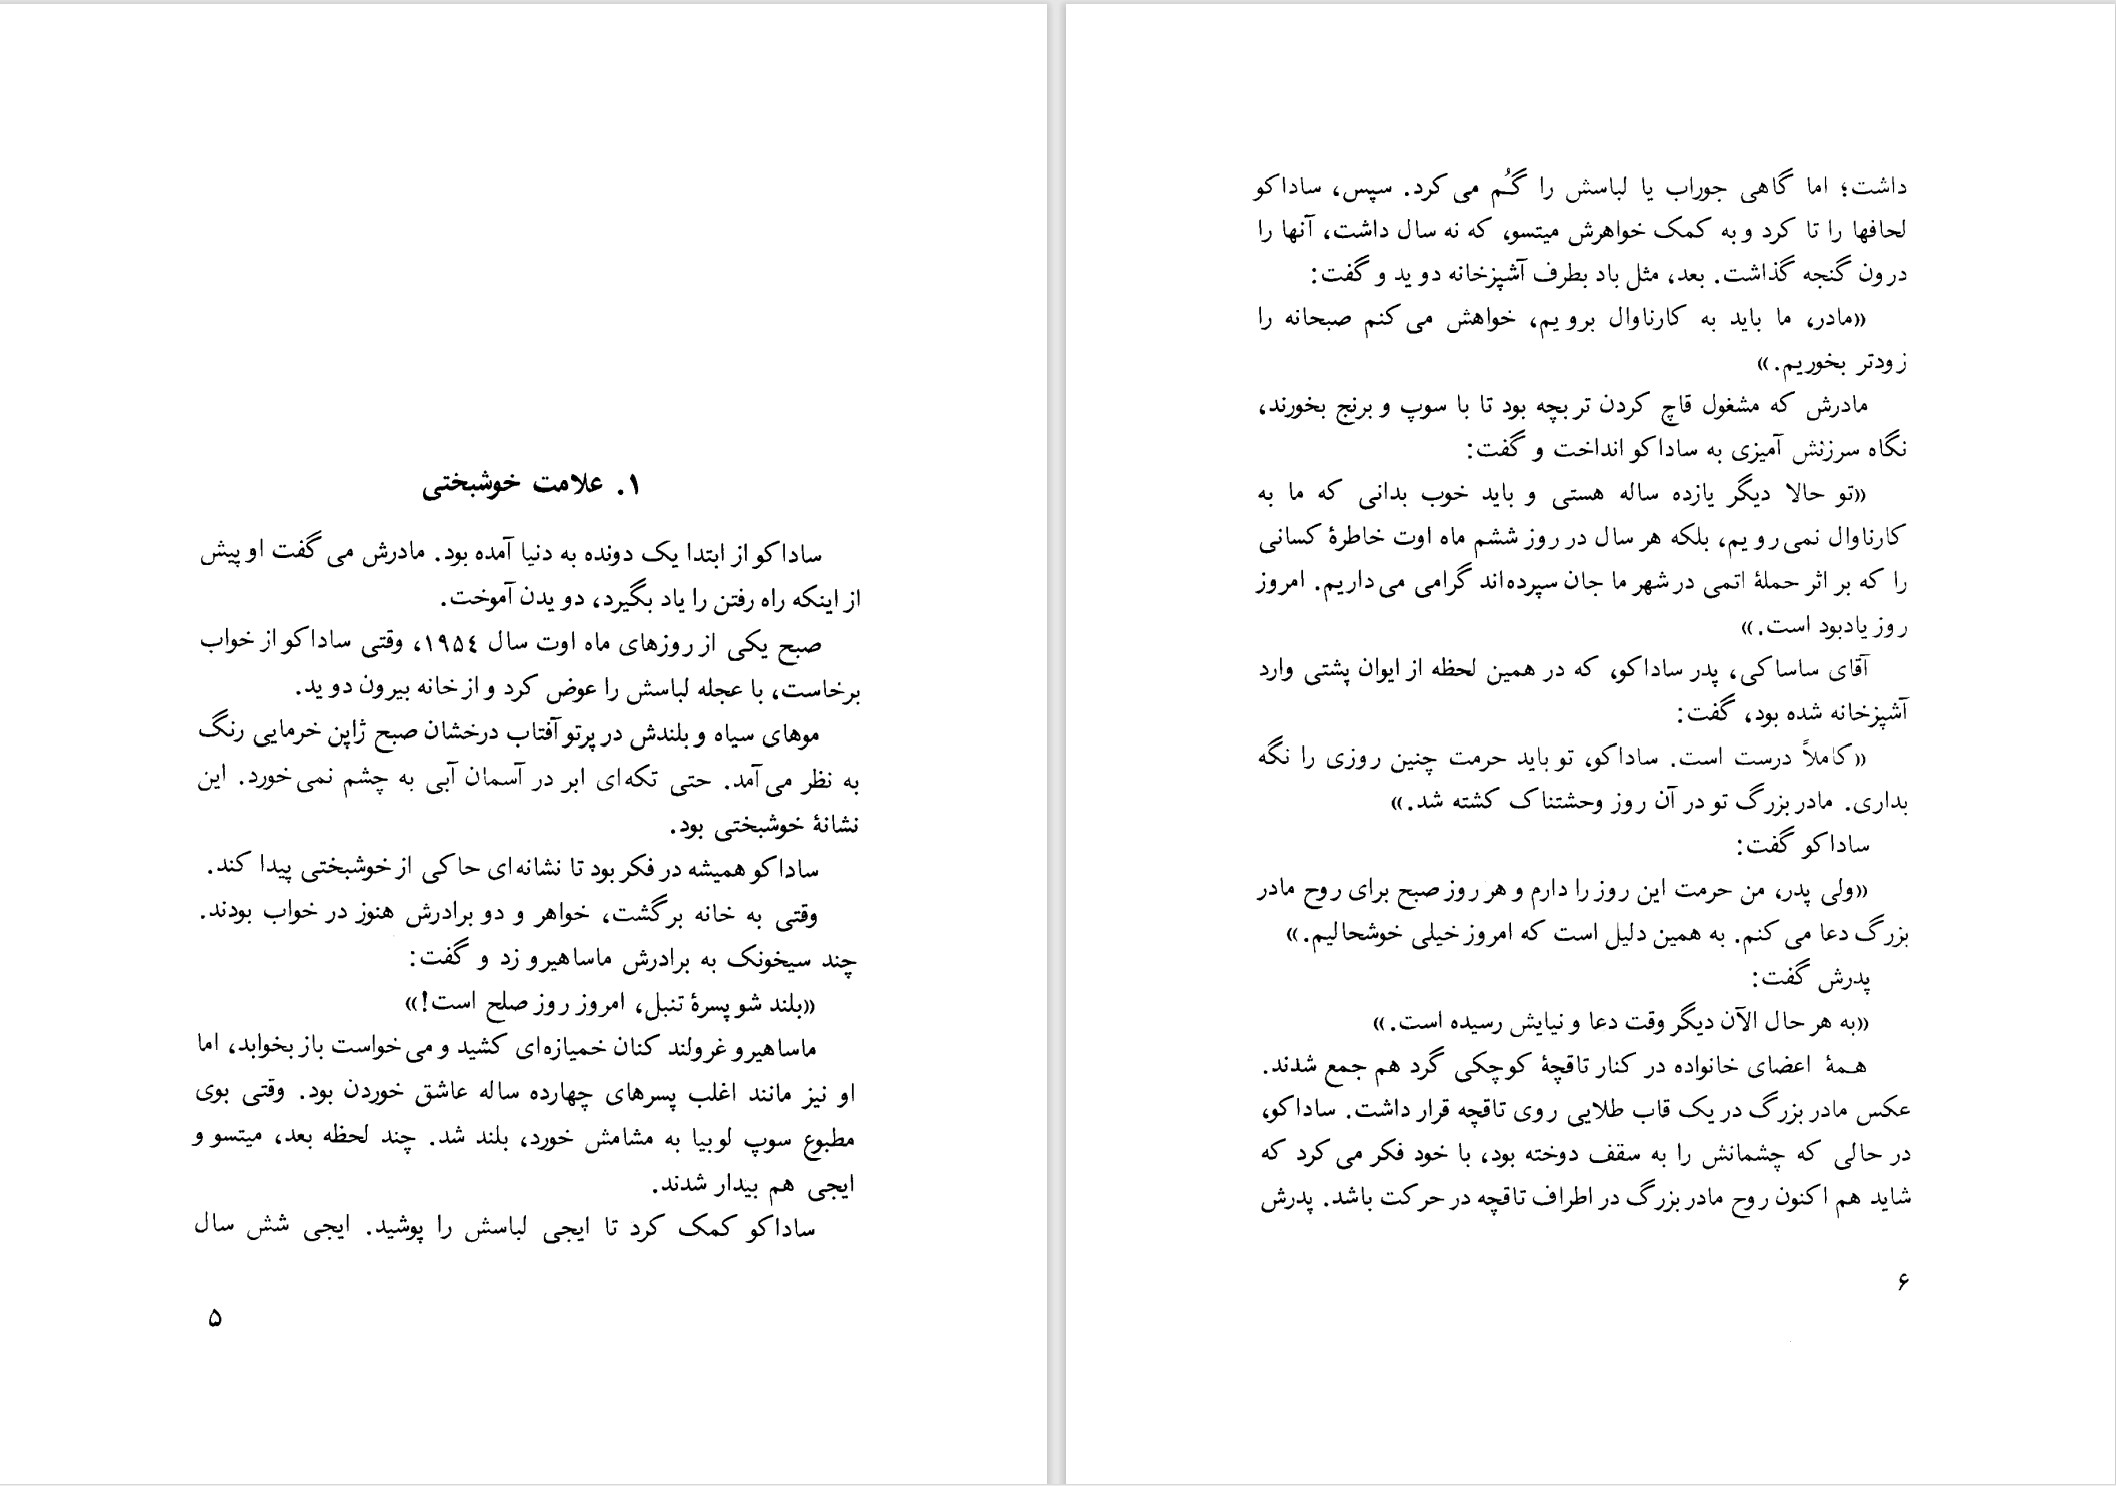 ۱. علامت خوشبختی
ساداکو از ابتدا یک دونده به دنیا آمده بود. مادرش می گفت او پیش
از اینکه راه رفتن را یاد بگیرد، دویدن آموخت.
صبح یکی از روزهای ماه اوت سال ۱۹۵٤، وقتی ساداکو از خواب
برخاست، با عجله لباسش را عوض کرد و از خانه بیرون دوید.
موهای سیاه و بلندش در پرتو آفتاب درخشان صبح ژاپن خرمایی رنگ
به نظر می آمد. حتی تکه ای ابر در آسمان آبی به چشم نمی خورد. این
نشانۀ خوشبختی بود.
ساداکو همیشه در فکر بود تا نشانه ای حاکی از خوشبختی پیدا کند.
وقتی به خانه برگشت، خواهر و دو برادرش هنوز در خواب بودند.
چند سیخونک به برادرش ماساهیرو زد و گفت:
«بلند شو پسرۀ تنبل، امروز روز صلح است!»
ماساهیرو غرولند کنان خمیازه ای کشید و می خواست باز بخوابد، اما
او نیز مانند اغلب پسرهای چهارده ساله عاشق خوردن بود. وقتی بوی
مطبوع سوپ لوبیا به مشامش خورد، بلند شد. چند لحظه بعد، میتسو و
ایجی هم بیدار شدند.
ساداکو کمک کرد تا ایجی لباسش را پوشید. ایجی شش سال
۵
داشت؛ اما گاهی جوراب یا لباسش را گُم می کرد. سپس، ساداکو
لحافها را تا کرد و به کمک خواهرش میتسو، که نه سال داشت، آنها را
درون گنجه گذاشت. بعد، مثل باد بطرف آشپزخانه دوید و گفت:
«مادر، ما باید به کارناوال برویم، خواهش می کنم صبحانه را
زودتر بخوریم.»
مادرش که مشغول قاچ کردن تربچه بود تا با سوپ و برنج بخورند،
نگاه سرزنش آمیزی به ساداکو انداخت و گفت:
«تو حالا دیگر یازده ساله هستی و باید خوب بدانی که ما به
کارناوال نمی رویم، بلکه هر سال در روز ششم ماه اوت خاطرۀ کسانی
را که بر اثر حملۀ اتمی در شهر ما جان سپرده اند گرامی می داریم. امروز
روز یادبود است.»
آقای ساساکی، پدر ساداکو، که در همین لحظه از ایوان پشتی وارد
آشپزخانه شده بود، گفت:
«کاملاً درست است. ساداکو، تو باید حرمت چنین روزی را نگه
بداری. مادر بزرگ تو در آن روز وحشتناک کشته شد.»
ساداکو گفت:
«ولی پدر، من حرمت این روز را دارم و هر روز صبح برای روح مادر
بزرگ دعا می کنم. به همین دلیل است که امروز خیلی خوشحالیم.»
پدرش گفت:
«به هر حال الآن دیگر وقت دعا و نیایش رسیده است.»
همۀ اعضای خانواده در کنار تاقچۀ کوچکی گرد هم جمع شدند.
عکس مادر بزرگ در یک قاب طلایی روی تاقچه قرار داشت. ساداکو،
در حالی که چشمانش را به سقف دوخته بود، با خود فکر می کرد که
شاید هم اکنون روح مادر بزرگ در اطراف تاقچه در حرکت باشد. پدرش
۶